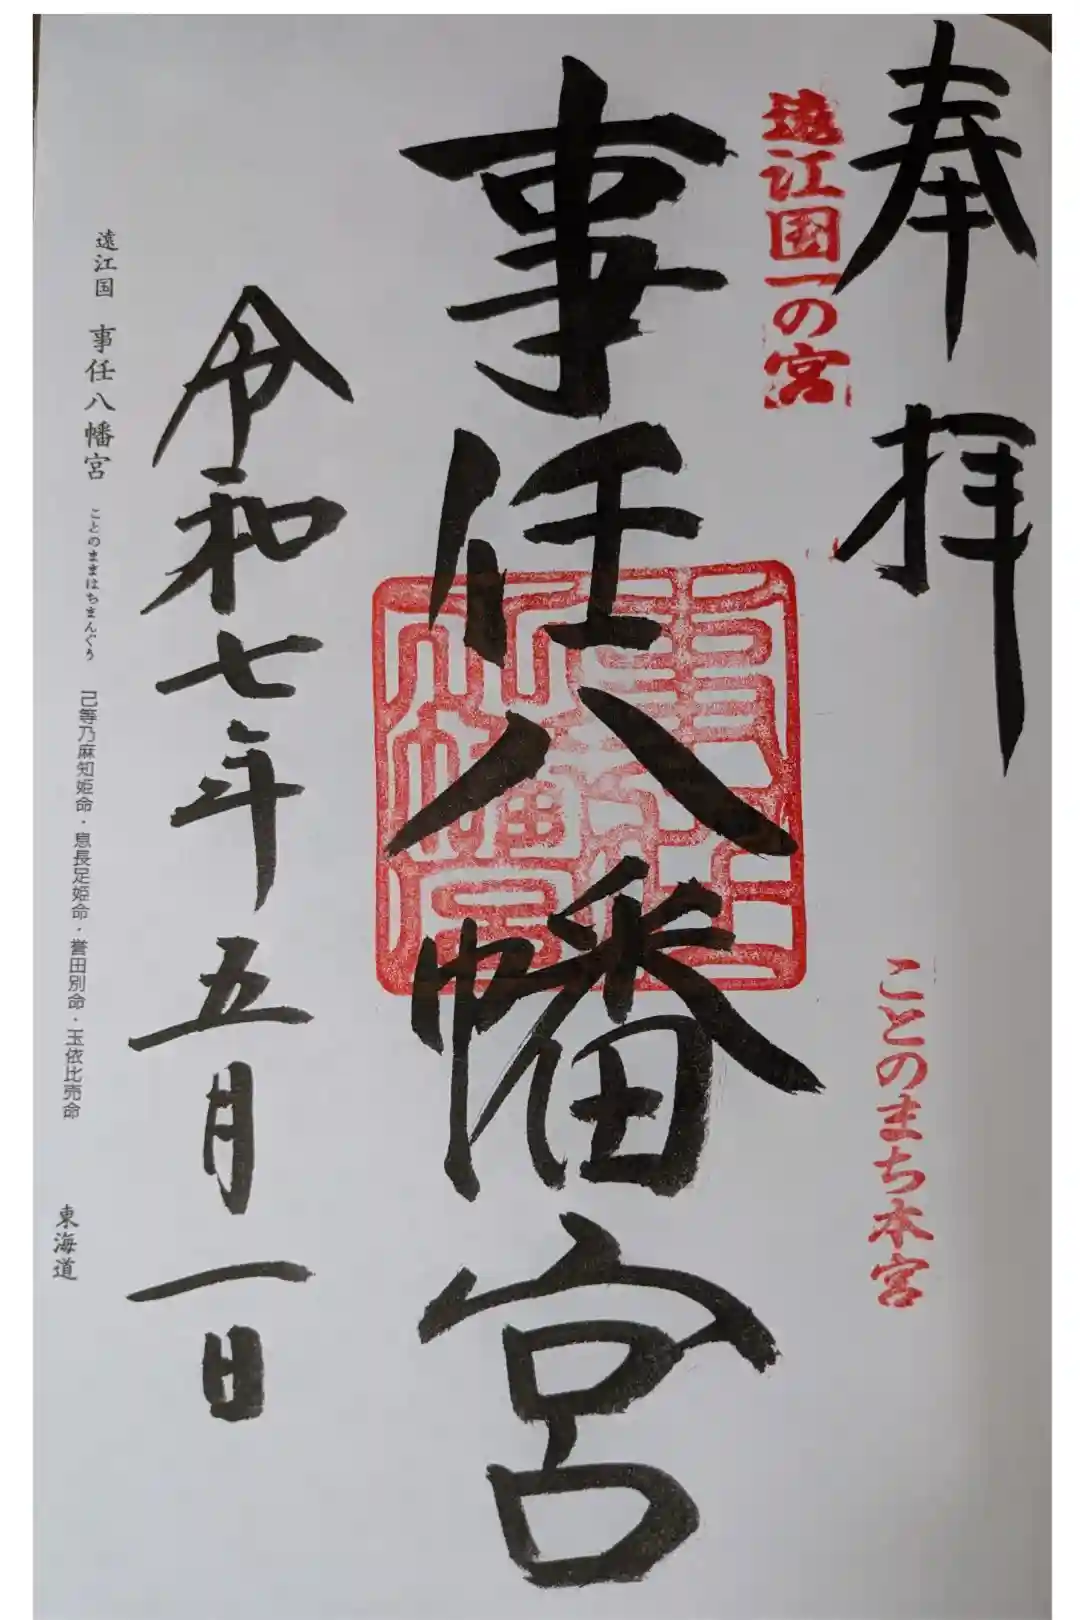 奉拝
遠江国一の宮
ことのまち本宮
事任八幡宮
事任八幡宮
令和七年五月一日
遠江国 事任八幡宮 ことのままはちまんぐう 己等乃麻知姫命・息長足姫命・誉田別命・玉依比売命 東海道